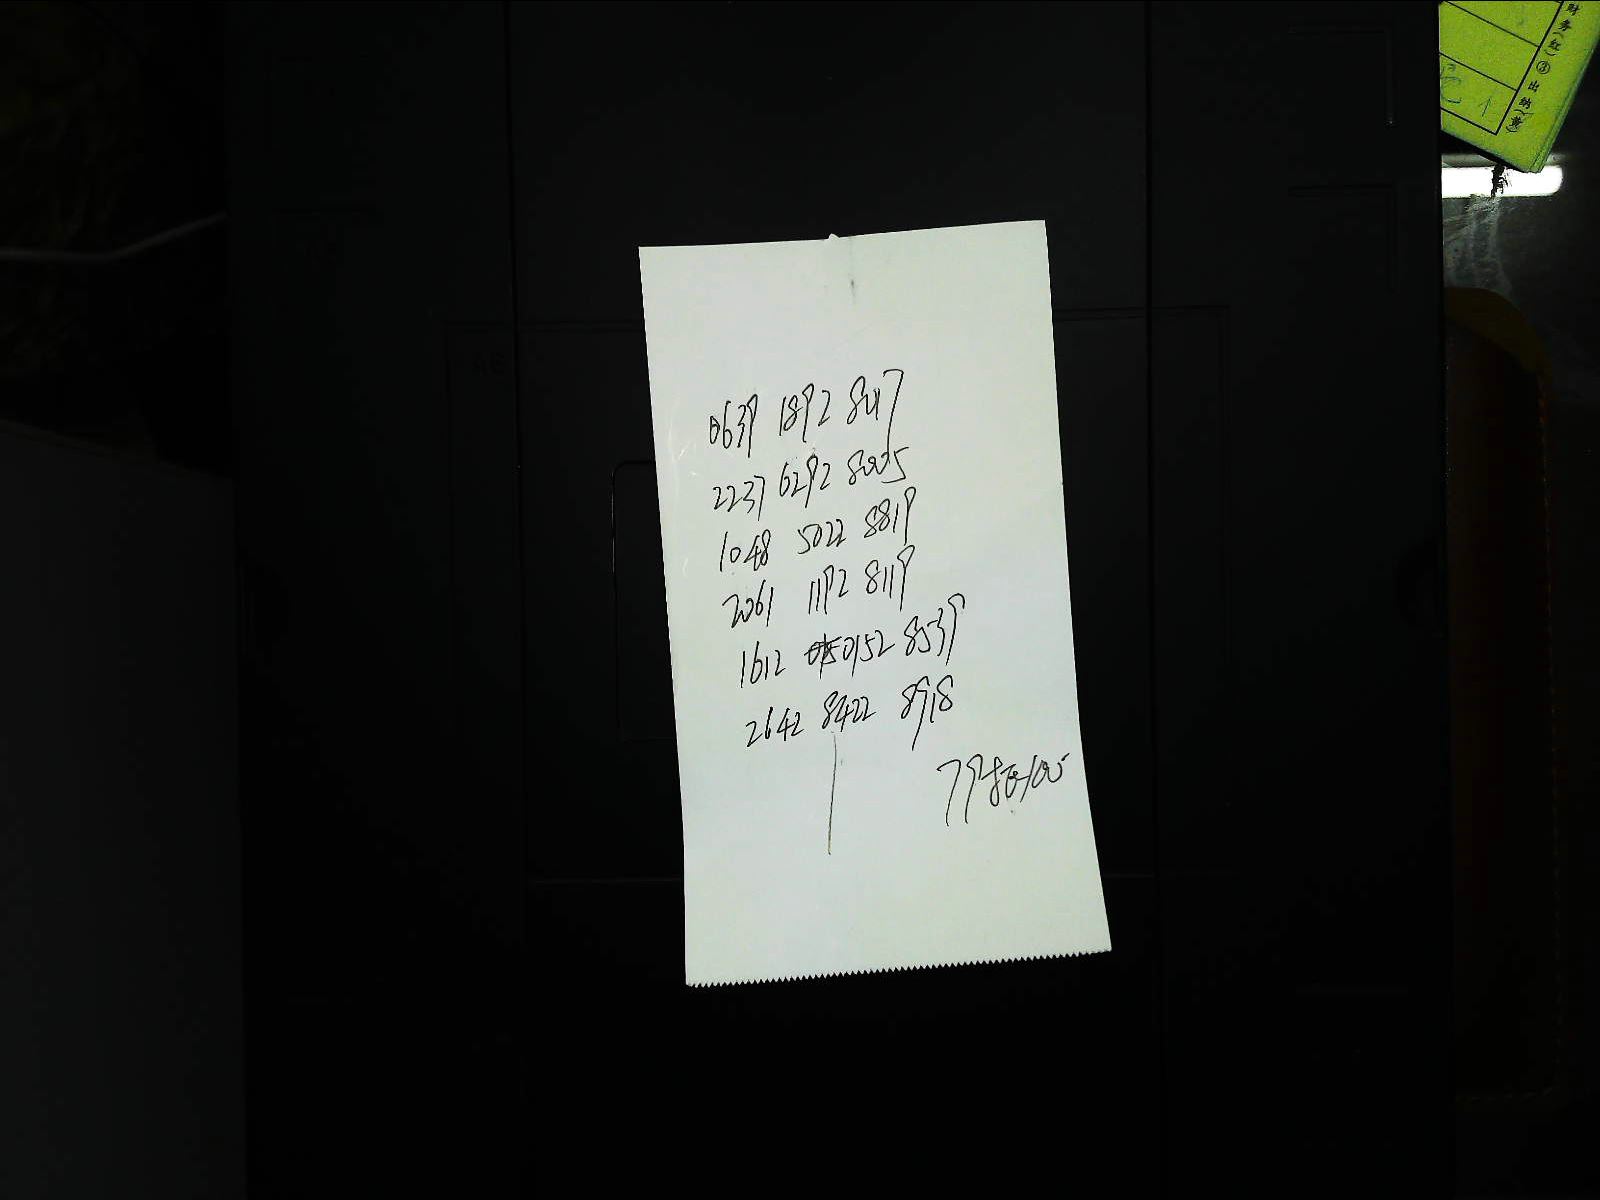 财务(红)③出纳(黄)
0639 1892 8417
2237 6292 8005
1048 5022 8819
2061 1192 8119
1612 0152 8539
2642 8422 8918